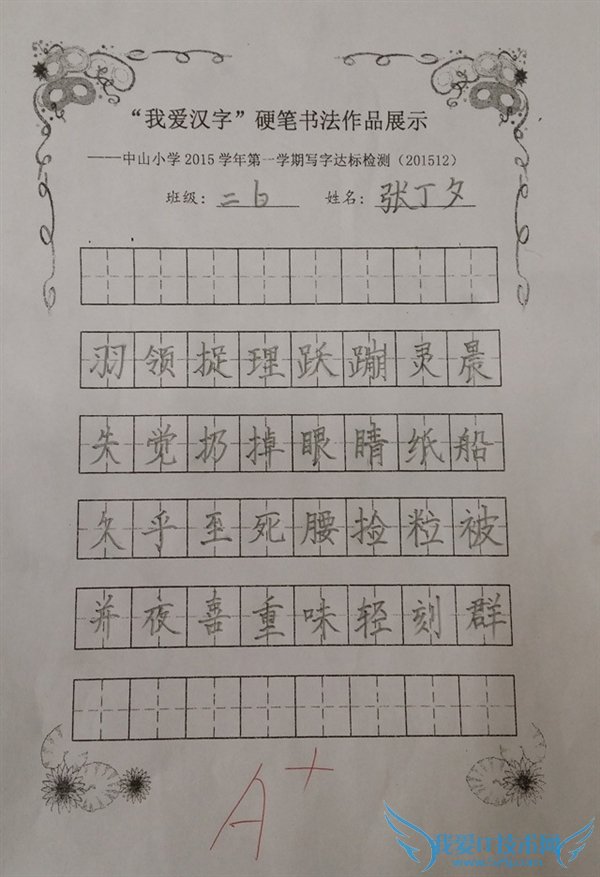 “我爱汉字”硬笔书法作品展示
——中山小学2015学年第一学期写字达标检测（201512）
班级：二6 姓名：张丁夕
羽领捉理跃蹦灵晨
失觉扔掉眼睛纸船
久乎至死腰捡粒被
并夜喜重味轻刻群
A+
我爱IT技术网